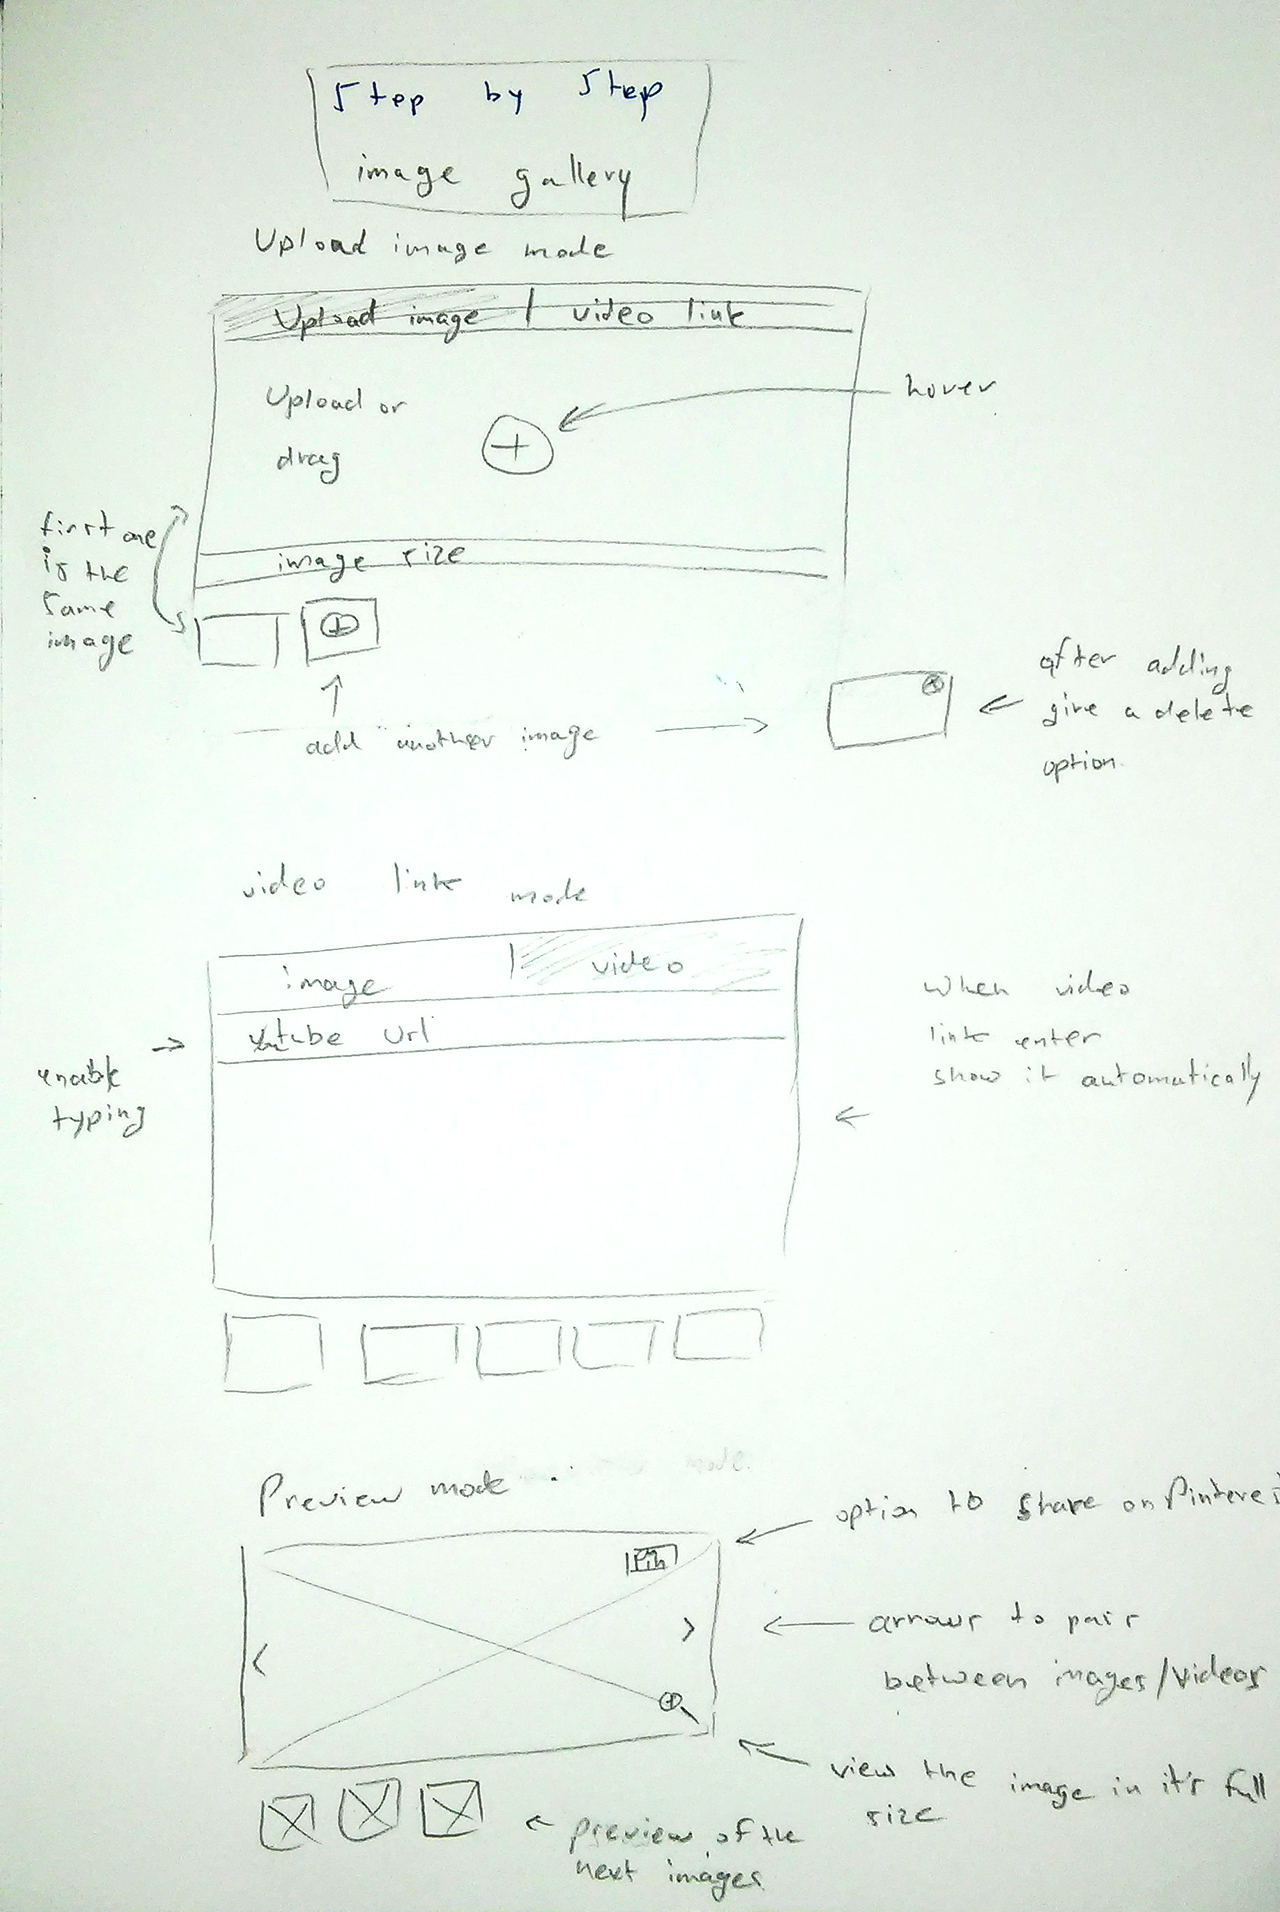 Step by Step
image gallery
Upload image mode
Upload image | video link
Upload or
drag
hover
first one
is the
same
image
image size
add another image
after adding
give a delete
option.
video link mode
image | video
Youtube Url
enable
typing
when video
link enter
show it automatically
Preview mode
Pin
option to share on Pinterest
arrows to pass
between images/videos
view the image in it's full
size
preview of the
next images